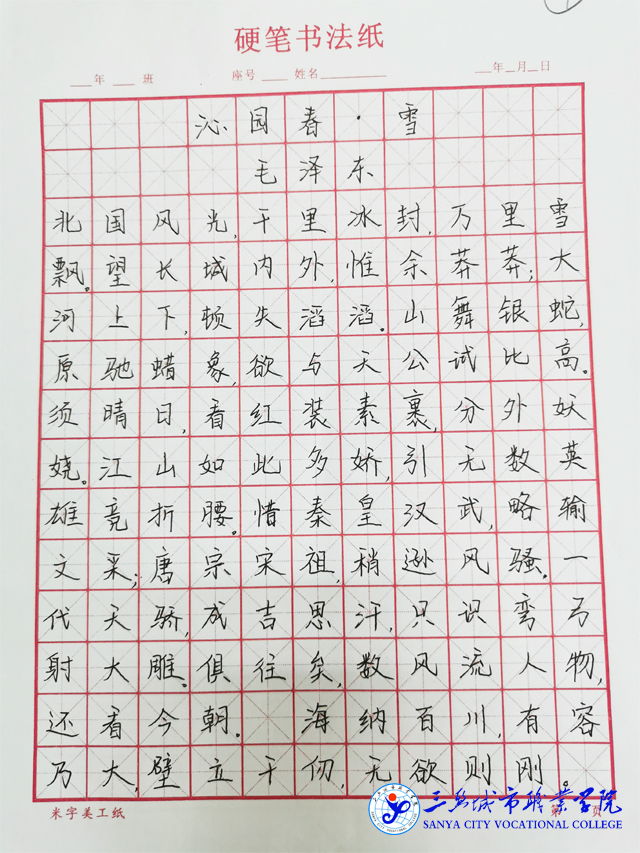 硬笔书法纸
年 班 座号 姓名 年 月 日
沁园春·雪
毛泽东
北国风光,千里冰封,万里雪
飘。望长城内外,惟余莽莽;大
河上下,顿失滔滔。山舞银蛇,
原驰蜡象,欲与天公试比高。
须晴日,看红装素裹,分外妖
娆。江山如此多娇,引无数英
雄竞折腰。惜秦皇汉武,略输
文采;唐宗宋祖,稍逊风骚。一
代天骄,成吉思汗,只识弯弓
射大雕。俱往矣,数风流人物,
还看今朝。 海纳百川,有容
乃大,壁立千仞,无欲则刚。
米字美工纸 第 页
三亚城市职业学院
SANYA CITY VOCATIONAL COLLEGE